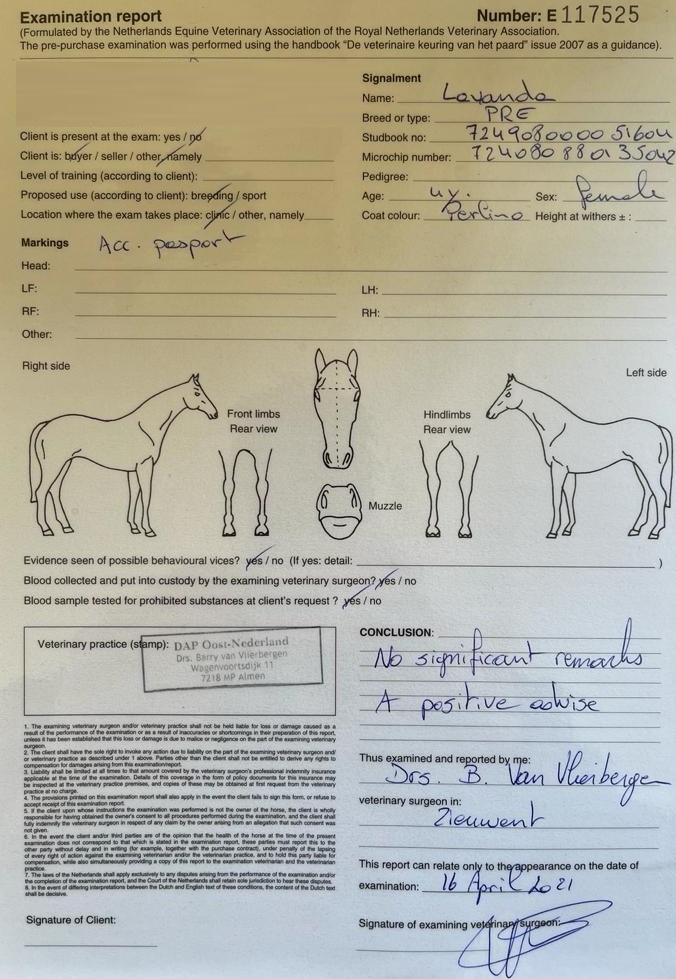 Examination report
Number: E 117525
(Formulated by the Netherlands Equine Veterinary Association of the Royal Netherlands Veterinary Association.
The pre-purchase examination was performed using the handbook “De veterinaire keuring van het paard” issue 2007 as a guidance).
Signalment
Name: Lavanda
Breed or type: PRE
Studbook no:
Microchip number:
Client is present at the exam: yes / no
Client is: buyer / seller / other, namely
Level of training (according to client):
Pedigree:
Proposed use (according to client): breeding / sport
Age: 4y. Sex: female
Location where the exam takes place: clinic / other, namely
Coat colour: Perlino Height at withers ± :
Markings Acc. pasport
Head:
LF:
LH:
RF:
RH:
Other:
Right side
Left side
Front limbs
Rear view
Hindlimbs
Rear view
Muzzle
Evidence seen of possible behavioural vices? yes / no (If yes: detail: )
Blood collected and put into custody by the examining veterinary surgeon? yes / no
Blood sample tested for prohibited substances at client's request ? yes / no
Veterinary practice (stamp):
DAP Oost-Nederland
Drs. Barry van Vlierbergen
Wagenvoortsdijk 11
7218 MP Almen
CONCLUSION:
No significant remarks
A positive advise
1. The examining veterinary surgeon and/or veterinary practice shall not be held liable for loss or damage caused as a
result of the performance of the examination or as a result of inaccuracies or shortcomings in their preparation of this report,
unless it has been established that this loss or damage is due to malice or negligence on the part of the examining veterinary
surgeon.
2. The client shall have the sole right to invoke any action due to liability on the part of the examining veterinary surgeon and/
or veterinary practice as described under 1 above. Parties other than the client shall not be entitled to derive any rights to
compensation for damages arising from this examination/report.
3. Liability shall be limited at all times to that amount covered by the veterinary surgeon's professional indemnity insurance
applicable at the time of the examination. Details of this coverage in the form of policy documents for this insurance may
be inspected at the veterinary practice premises, and copies of these may be obtained at first request from the veterinary
practice at no charge.
4. The provisions printed on this examination report shall also apply in the event the client fails to sign this form, or refuse to
accept receipt of this examination report.
5. If the client upon whose instructions the examination was performed is not the owner of the horse, the client is wholly
responsible for having obtained the owner's consent to all procedures performed during the examination, and the client shall
fully indemnify the veterinary surgeon in respect of any claim by the owner arising from an allegation that such consent was
not given.
6. In the event the client and/or third parties are of the opinion that the health of the horse at the time of the present
examination does not correspond to that which is stated in the examination report, these parties must report this to the
other party without delay and in writing (for example, together with the purchase contract), under penalty of the lapsing
of every right of action against the examining veterinarian and/or the veterinary practice, and to hold this party liable for
compensation, while also simultaneously providing a copy of this report to the examination veterinarian and the veterinarian
practice.
7. The laws of the Netherlands shall apply exclusively to any disputes arising from the performance of the examination and/or
the completion of the examination report, and the Court of the Netherlands shall retain sole jurisdiction to hear these disputes.
8. In the event of differing interpretations between the Dutch and English text of these conditions, the content of the Dutch text
shall be decisive.
Thus examined and reported by me:
Drs. B. Van Vlierbergen
veterinary surgeon in:
Zieuwent
This report can relate only to the appearance on the date of
examination: 16 April 2021
Signature of Client:
Signature of examining veterinary surgeon: